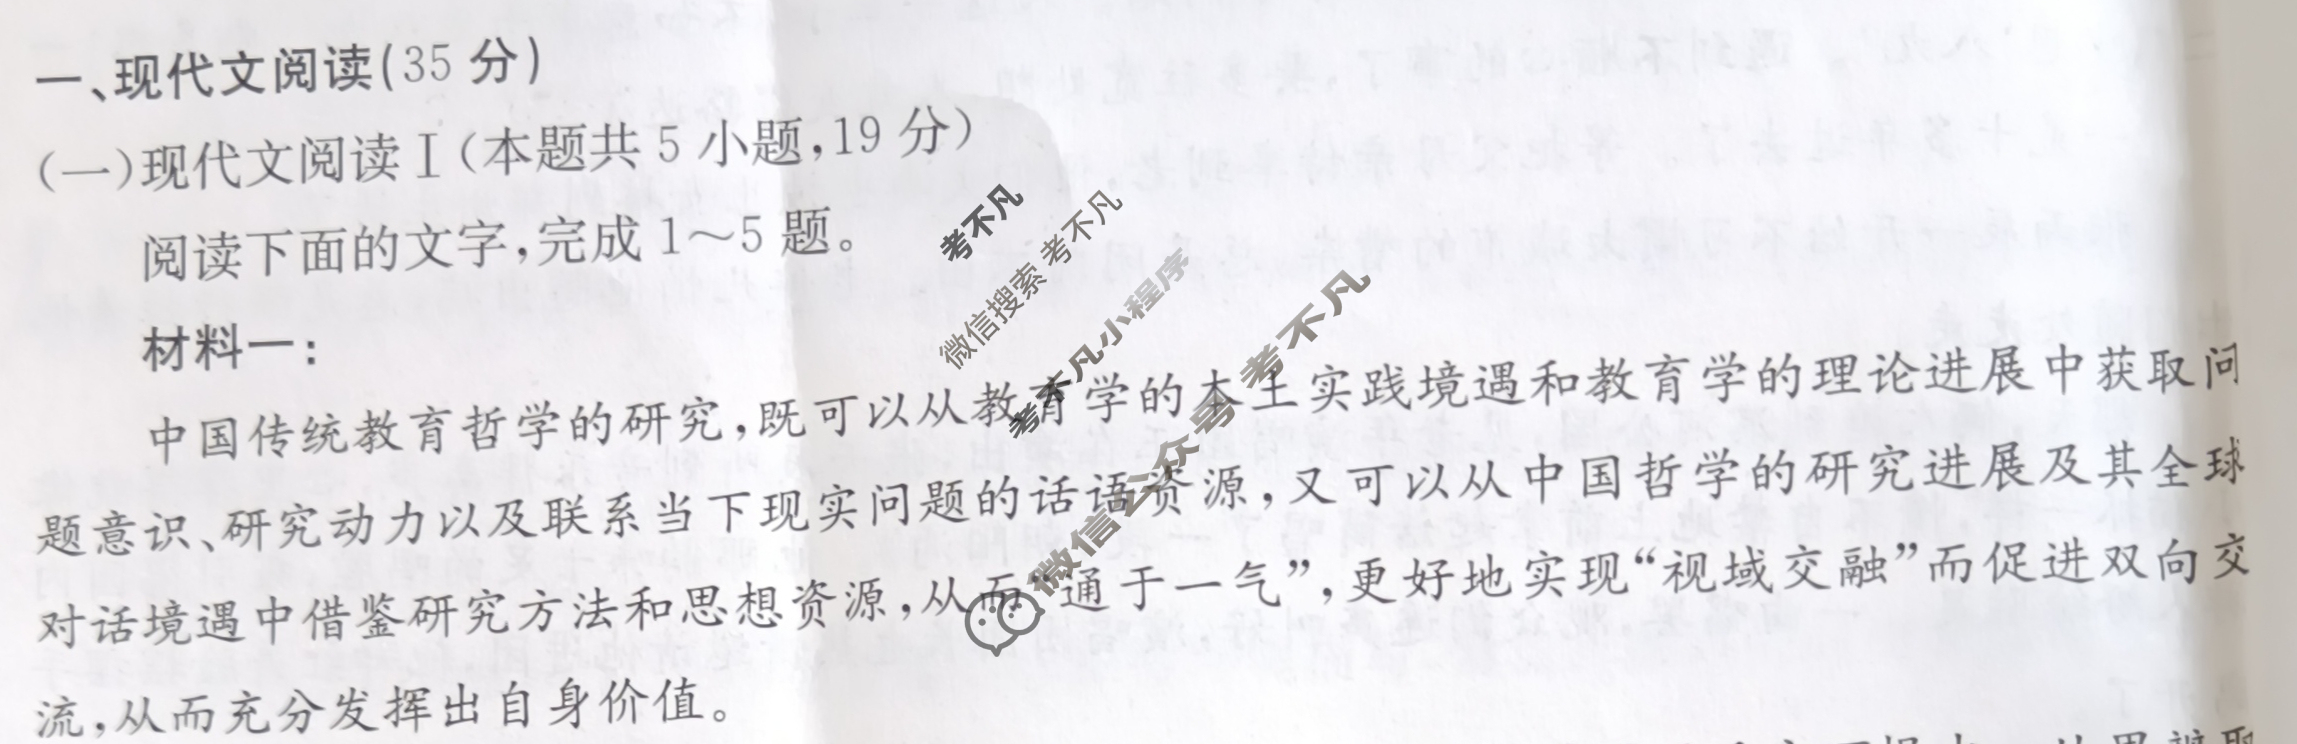 一、现代文阅读(35 分)
(一)现代文阅读Ⅰ(本题共 5 小题,19 分)
阅读下面的文字,完成 1～5 题。
材料一:
中国传统教育哲学的研究,既可以从教育学的本土实践境遇和教育学的理论进展中获取问
题意识、研究动力以及联系当下现实问题的话语资源,又可以从中国哲学的研究进展及其全球
对话境遇中借鉴研究方法和思想资源,从而“通于一气”,更好地实现“视域交融”而促进双向交
流,从而充分发挥出自身价值。
考不凡
微信搜索 考不凡
考不凡小程序
微信公众号 考不凡